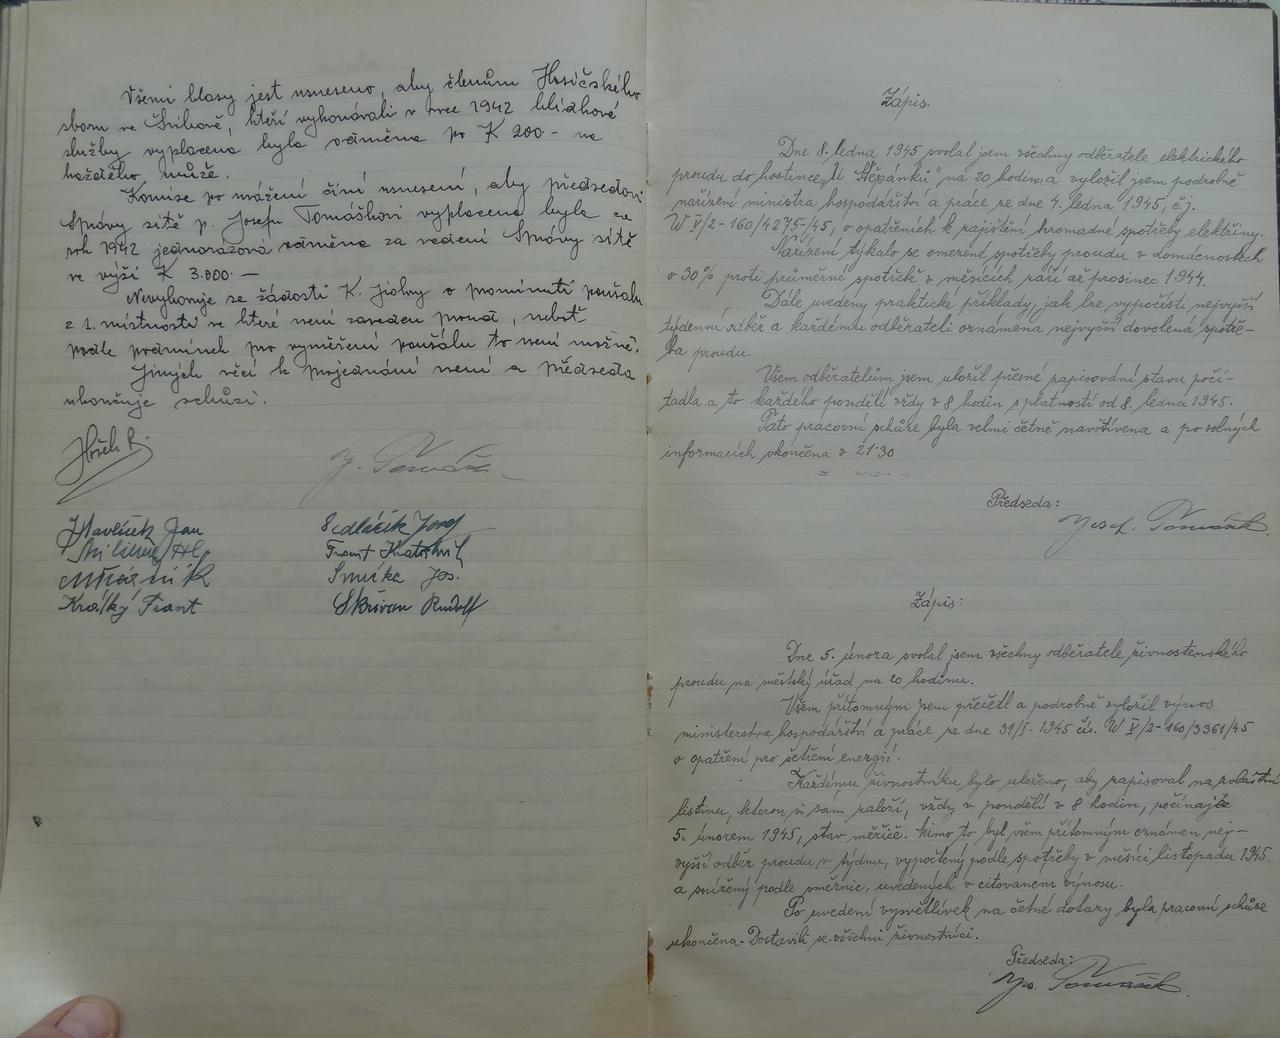 Všemi hlasy jest usneseno, aby členům Hasičského
sboru ve, kteří vykonávali v roce 1942 hlídkové
služby vyplacena byla odměna po K 200.- na
každého, muže.
Komise po uvážení činí usnesení, aby předsedovi
Správy sítě p. Josefu Tomáškovi vyplacena byla za
rok 1942 jednorázová odměna za vedení Správy sítě
ve výši K 3.000.-
Nevyhovuje se žádosti K. o prominutí paušálu
z 1. místnosti ve které není zaveden proud, neboť
podle podmínek pro vyměření paušálu to není možné.
Jiných věcí k projednání není a předseda
ukončuje schůzi.
Hošek R.
J. Tomášek
Havlíček Jan
Sedláček Josef
Frant
Smrčka Jos.
Krátký Frant
Skřivan Rudolf
Zápis.
Dne 8. ledna 1945 svolal jsem všechny odběratele elektrického
proudu do hostince „U Štěpánků" na 20 hodin, a vyložil jsem podrobně
nařízení ministra hospodářství a práce ze dne 4. ledna 1945, č.j.
W V/2-160/4275-/45, o opatřeních k zajištění hromadné spotřeby elektřiny.
Nařízení týkalo se omezené spotřeby proudu v domácnostech
o 30% proti průměrné spotřebě v měsících září až prosinec 1944.
Dále uvedeny praktické příklady, jak lze vypočísti nejvyšší
týdenní odběr a každému odběrateli oznámena nejvyšší dovolená spotře-
ba proudu.
Všem odběratelům jsem uložil přesné zapisování stavu počí-
tadla a to každého pondělí vždy v 8 hodin s platností od 8. ledna 1945.
Tato pracovní schůze byla velmi četně navštívena a po volných
informacích skončena v 21.30
Předseda:
Josef Tomášek
Zápis:
Dne 5. února svolal jsem všechny odběratele živnostenského
proudu na městský úřad na 20 hodinu.
Všem přítomným jsem přečetl a podrobně vyložil výnos
ministerstva hospodářství a práce ze dne 31/I. 1945 čís. W V/2-160/3361/45
o opatření pro šetření energií.
Každému živnostníku bylo uloženo, aby zapisoval na zvláštní
listinu, kterou si sám založí, vždy v pondělí v 8 hodin, počínaje
5. únorem 1945, stav měřiče. Mimo to byl všem přítomným oznámen nej-
vyšší odběr proudu v týdnu, vypočtený podle spotřeby v měsíci listopadu 1945.
a snížený podle směrnic, uvedených v citovaném výnosu.
Po uvedení vysvětlivek na četné dotazy byla pracovní schůze
ukončena. Dostavili se všichni živnostníci.
Předseda:
Jos. Tomášek